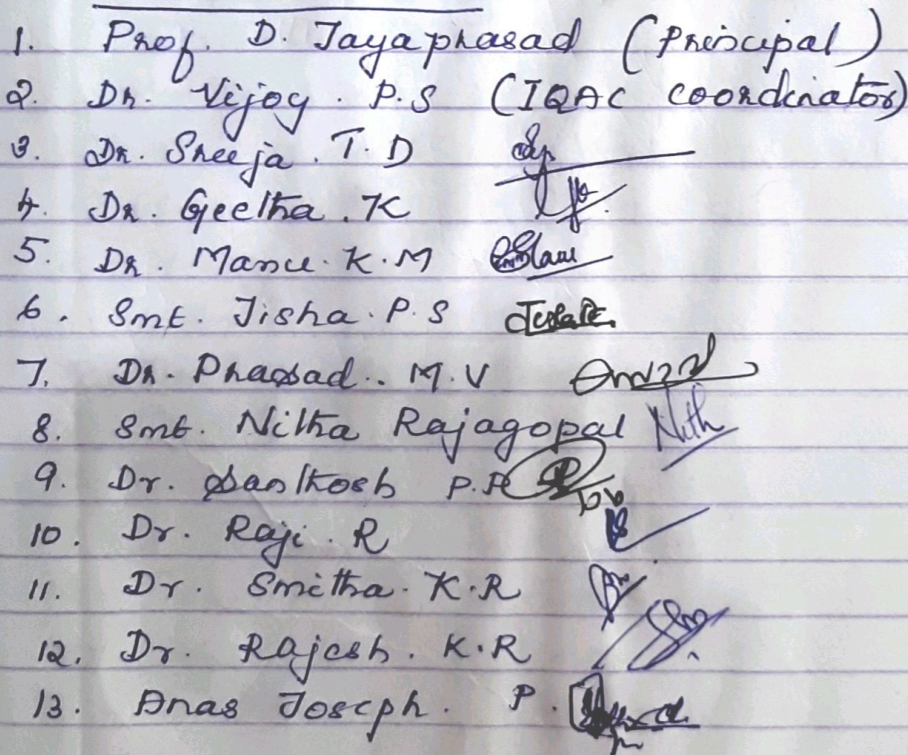 1. Prof. D. Jayaprasad (Principal)
2. Dr. Vijoy. P.S (IQAC coordinator)
3. Dr. Sreeja. T. D
4. Dr. Geetha. K
5. Dr. Manu. K. M
6. Smt. Jisha. P. S
7. Dr. Prasad.. M. V
8. Smt. Nitha Rajagopal Nith
9. Dr. Santhosh P.P
10. Dr. Raji. R
11. Dr. Smitha. K.R
12. Dr. Rajesh. K.R
13. Anas Joseph. P.